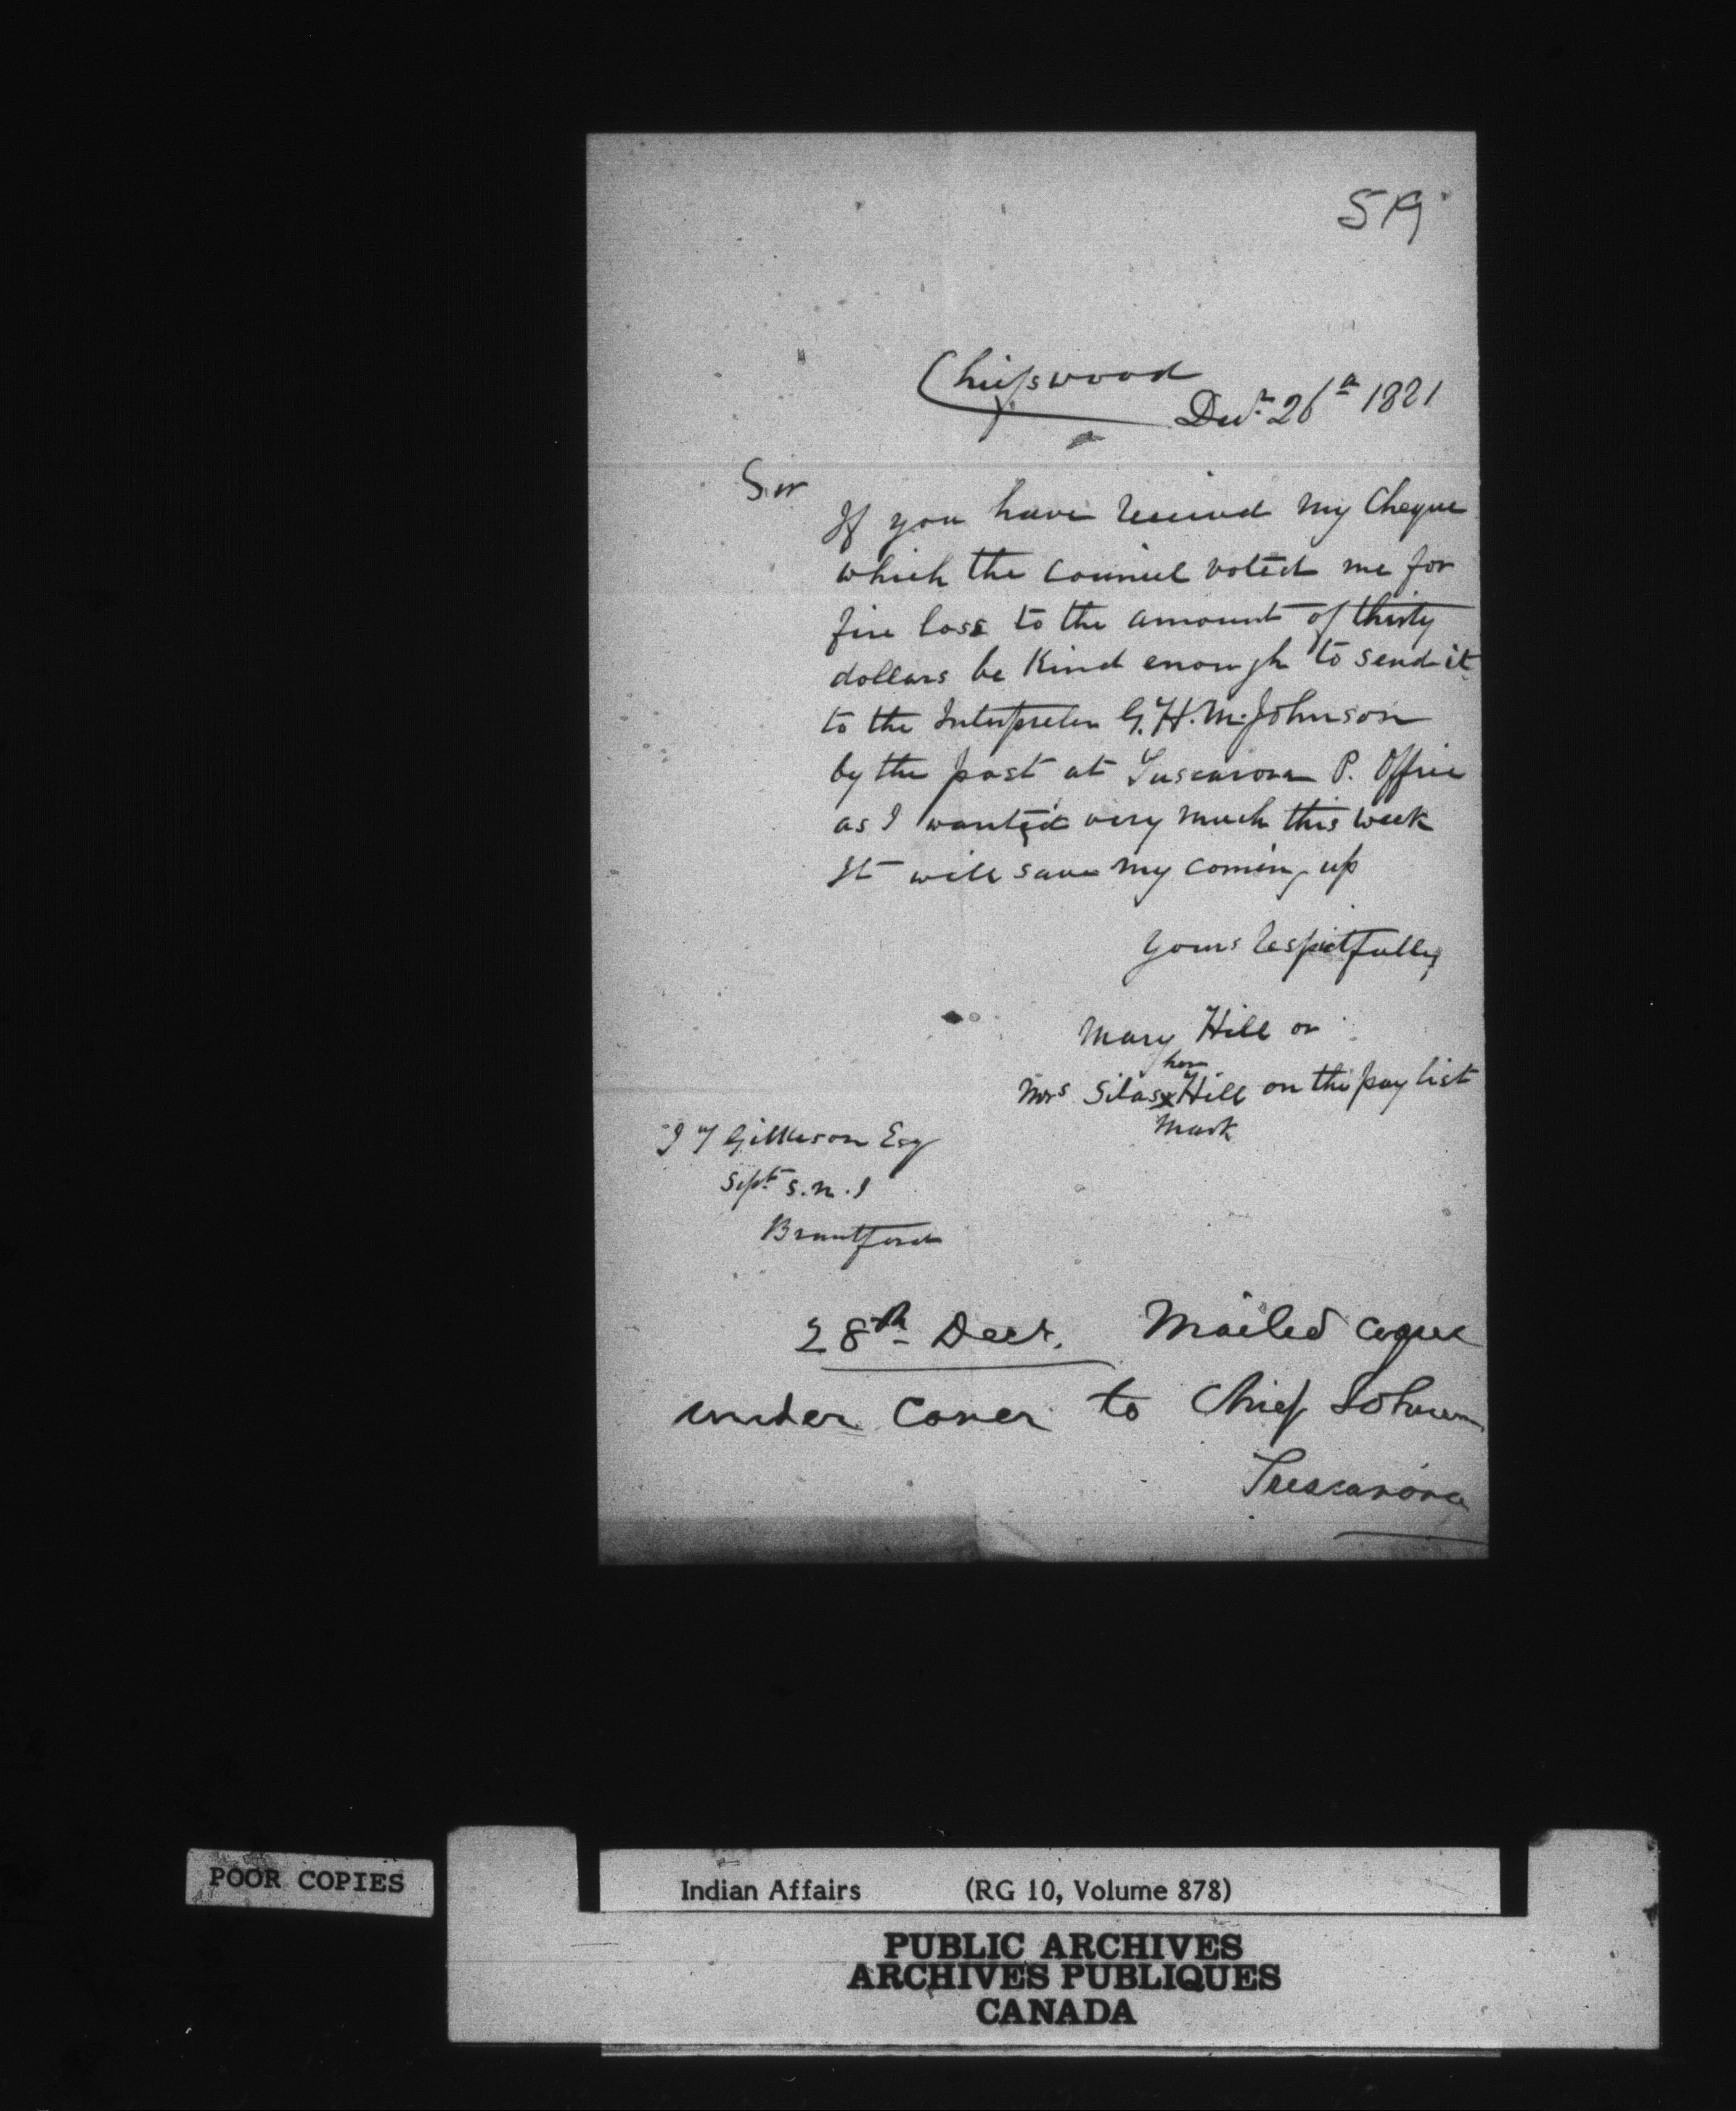 519
Chiefswood
Decr 26th 1881
Sir
If you have received my Cheque
which the council voted me for
fire loss to the amount of thirty
dollars be Kind enough to send it
to the Interpreter G.H.M. Johnson
by the post at Tuscarora P. Office
as I wanted very much this week
It will save my coming up
Yours respectfully
Mary Hill or
her
Mrs Silas x Hill on the pay list
mark
Gilkison Esq
Supt S.N.I
Brantford
28th Decr. Mailed cque
under cover to Chief Johnson
Tuscarora
POOR COPIES
Indian Affairs (RG 10, Volume 878)
PUBLIC ARCHIVES
ARCHIVES PUBLIQUES
CANADA